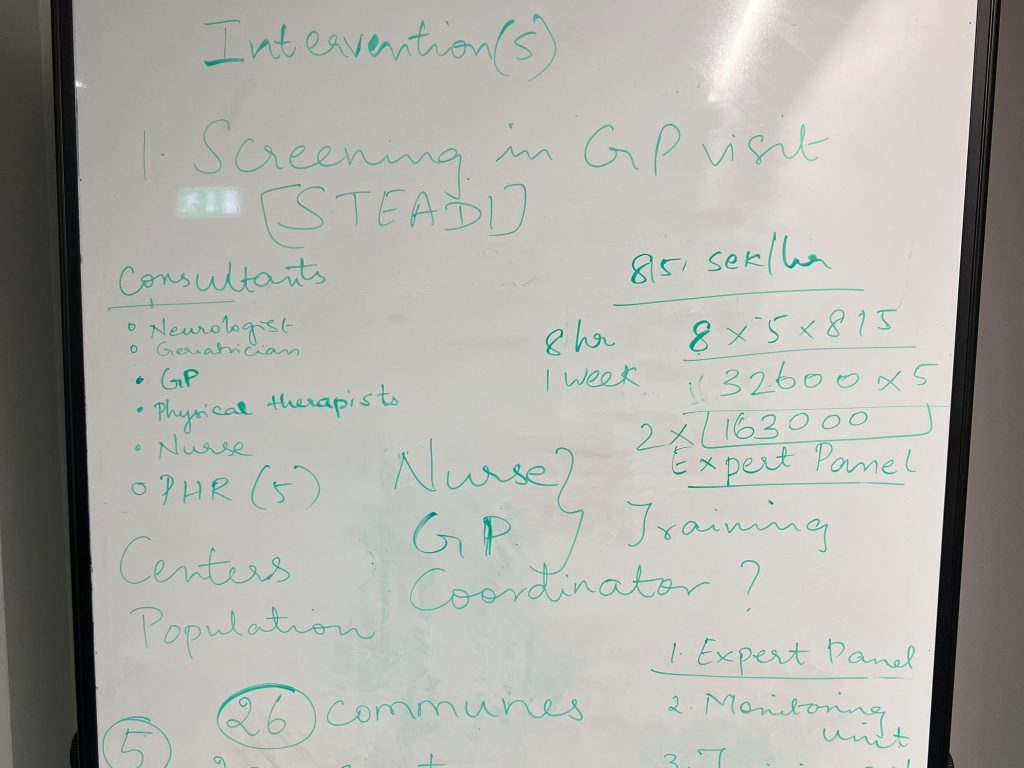 Intervention(s)
1. Screening in GP visit
[STEADI]
Consultants
Neurologist
Geriatrician
GP
Physical therapists
Nurse
PHR (5)
815 sek/hr
8 hr 8 x 5 x 815
1 week 32600 x 5
2 x 163000
Expert Panel
Nurse
GP
Training
Coordinator ?
Centers
Population
26 communes
5
1. Expert Panel
2. Monitoring
unit
3.